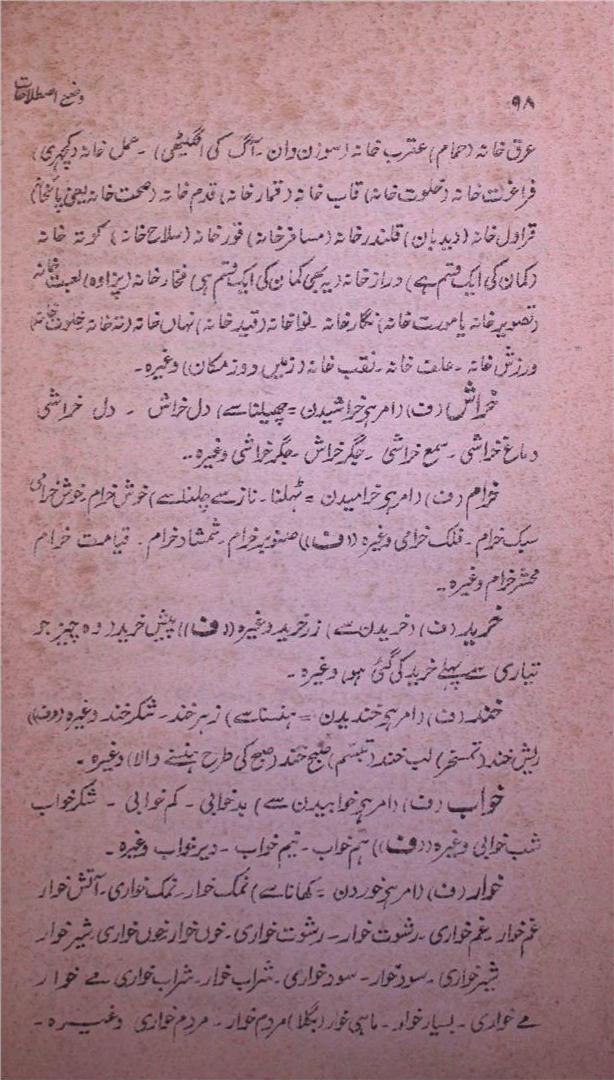 ۹۸
وضع اصطلاحات
عرق خانہ (حمام) عقرب خانہ (سوزن دان ۔ آگ کی انگیٹھی) ۔ عمل خانہ (کچہری)
فراغت خانہ (خلوت خانہ) قاب خانہ (قمار خانہ) قدم خانہ (صحت خانہ یعنی پائخانہ)
قراول خانہ (دیدبان) قلندر خانہ (مسافر خانہ) قور خانہ (سلاح خانہ) خانہ
(کمان کی ایک قسم ہے) دراز خانہ (یہ بھی کمان کی ایک قسم ہے) فخار خانہ (پزاوہ) لعبت خانہ
(تصویر خانہ یا مورت خانہ) نگار خانہ ۔ نوا خانہ (قید خانہ) نہاں خانہ (تہ خانہ خلوت خانہ)
ورزش خانہ ۔ علف خانہ ۔ نقب خانہ (زمیں دوز مکان) وغیرہ ۔
خراش (ف) (امر ہے خراشیدن = چھیلنا سے) دل خراش ۔ دل خراشی
دماغ خراشی ۔ سمع خراشی ۔ جگر خراش ۔ جگر خراشی وغیرہ ۔۔
خرام (ف) (امر ہے خرامیدن = ٹہلنا ۔ ناز سے چلنا سے) خوش خرام ۔ خوش خرامی
سبک خرام ۔ فلک خرامی وغیرہ ((ف)) صنوبر خرام ۔ شمشاد خرام ۔ قیامت خرام
محشر خرام وغیرہ ۔۔
خرید (ف) (خریدن سے) زر خرید وغیرہ ((ف)) پیش خرید (وہ چیز جو
تیاری سے پہلے خرید کی گئی ہو) وغیرہ ۔
خند (ف) (امر ہے خندیدن = ہنسنا سے) زہر خند ۔ شکر خند وغیرہ ((ف))
ریش خند (تمسخر) لب خند (تبسم) صبح خند (صبح کی طرح ہنسنے والا) وغیرہ ۔
خواب (ف) (امر ہے خوابیدن سے) بد خوابی ۔ کم خوابی ۔ شکر خواب
شب خوابی وغیرہ ((ف)) ہم خواب ۔ نیم خواب ۔ دیر خواب وغیرہ ۔
خوار (ف) (امر ہے خوردن = کھانا سے) نمک خوار ۔ نمک خواری ۔ آتش خوار
غم خوار ۔ غم خواری ۔ رشوت خوار ۔ رشوت خواری ۔ خوں خوار خوں خواری شیر خوار
شیر خواری ۔ سود خوار ۔ سود خواری ۔ شراب خوار ۔ شراب خواری مے خوار
مے خواری ۔ بسیار خوار ۔ ماہی خوار (بگلا) مردم خوار ۔ مردم خواری وغیرہ ۔